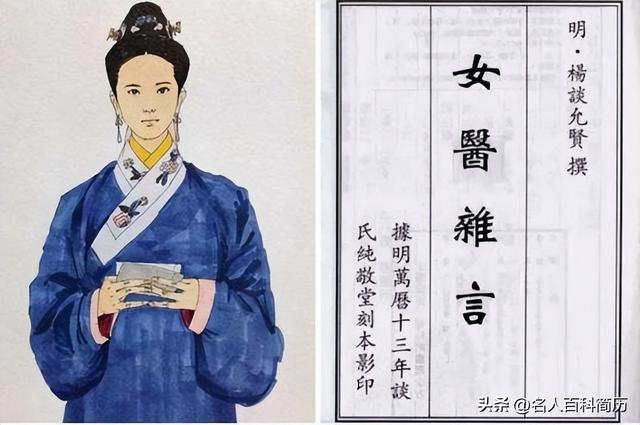 明·楊談允賢撰
女醫雜言
據明萬曆十三年談
氏純敬堂刻本影印
头条 @名人百科简历